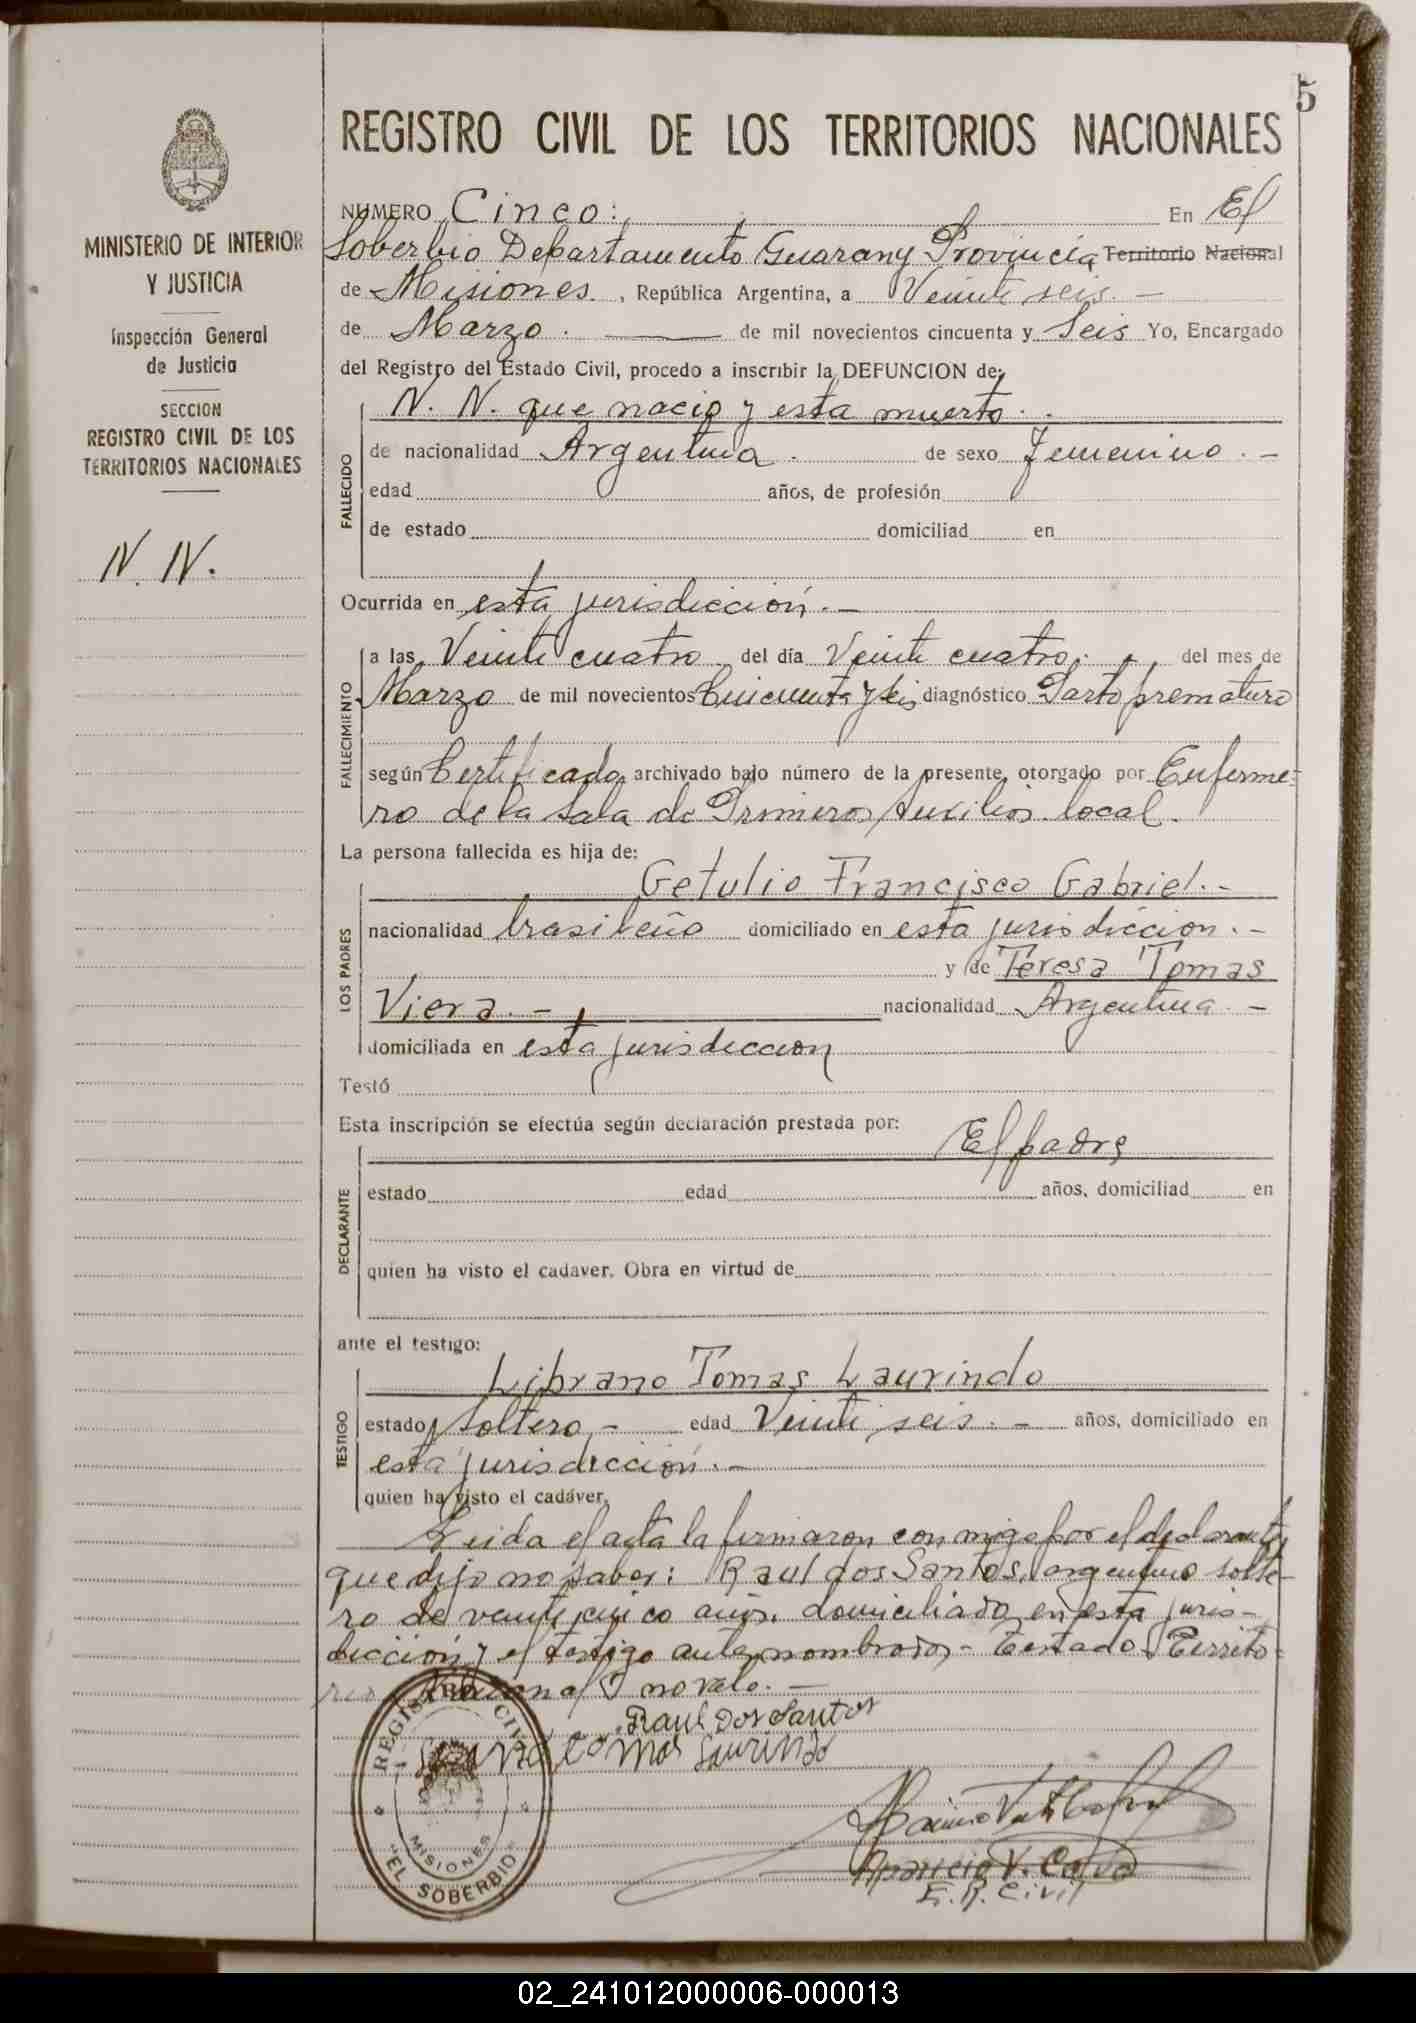 5
REGISTRO CIVIL DE LOS TERRITORIOS NACIONALES
MINISTERIO DE INTERIOR
Y JUSTICIA
Inspección General
de Justicia
SECCION
REGISTRO CIVIL DE LOS
TERRITORIOS NACIONALES
N. N.
NUMERO Cinco: En El
Soberbio Departamento Guarany Provincia Territorio Nacional
de Misiones. , República Argentina, a Veinte seis. -
de Marzo. de mil novecientos cincuenta y Seis Yo, Encargado
del Registro del Estado Civil, procedo a inscribir la DEFUNCION de:
N. N. que nacio y esta muerto.
FALLECIDO
de nacionalidad Argentina. de sexo Femenino. -
edad años, de profesión
de estado domiciliad en
Ocurrida en esta jurisdicción. -
FALLECIMIENTO
a las Veinte cuatro del día Veinte cuatro. del mes de
Marzo de mil novecientos Cincuenta y seis diagnóstico Parto prematuro
según Certificado archivado bajo número de la presente, otorgado por Enferme-
ro de la Sala de Primeros Auxilios local.
La persona fallecida es hija de:
LOS PADRES
Getulio Francisco Gabriel. -
nacionalidad brasileño domiciliado en esta jurisdiccion. -
y de Teresa Tomas
Viera. - nacionalidad Argentina -
domiciliada en esta jurisdiccion
Testó
Esta inscripción se efectúa según declaración prestada por:
DECLARANTE
El padre
estado edad años, domiciliad en
quien ha visto el cadaver. Obra en virtud de
ante el testigo:
TESTIGO
Librano Tomas Laurindo
estado Soltero - edad Veinte seis. - años, domiciliado en
esta jurisdicción. -
quien ha visto el cadáver.
Leida el acta la firmaron conmigo por el declarante,
que dijo no saber: Raul dos Santos, argentino solte-
ro de veinte cinco años, domiciliado en esta juris-
dicción y el testigo antes nombrado, - Testado: Territo-
rio Nacional no vale. -
Raul Dos Santos
Tomas Laurindo
REGISTRO CIVIL
MISIONES
"EL SOBERBIO"
Aparicio V.
E. R. Civil
02_241012000006-000013